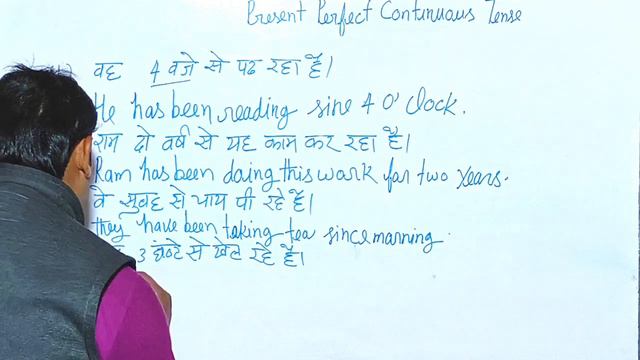 Present Perfect Continuous Tense
वह 4 बजे से पढ रहा है।
He has been reading sine 4 O'clock.
राम दो वर्ष से यह काम कर रहा है।
Ram has been doing this work for two years.
वे सुबह से चाय पी रहे हैं।
They have been taking tea since marning.
3 घण्टे से खेल रहे हैं।